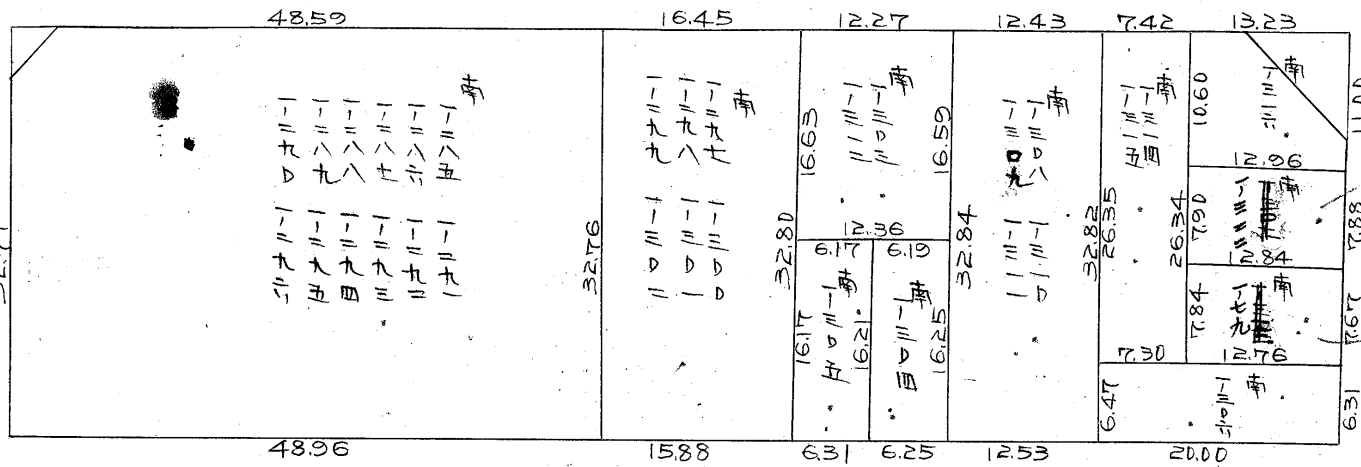 48.59 16.45 12.27 12.43 7.42 13.23
南
一二八五
一二八六
一二八七
一二八八
一二八九
一二九〇
一二九一
一二九二
一二九三
一二九四
一二九五
一二九六
32.76
南
一二九七
一二九八
一二九九
一三〇〇
一三〇一
一三〇二
32.80
16.63
南
一三〇三
一三一三
16.59
12.36
6.17 6.19
16.17
南
一三〇五
16.21
南
一三〇四
16.25
32.84
南
一三〇八
一三〇九
一三一〇
一三一一
32.82
南
一三一四
一三一五
26.35
26.34
7.30
10.60
南
一三一六
11.00
12.96
7.90
南
一三三三
7.88
12.84
7.84
南
一七九
7.67
12.76
6.47
南
6.31
48.96 15.88 6.31 6.25 12.53 20.00